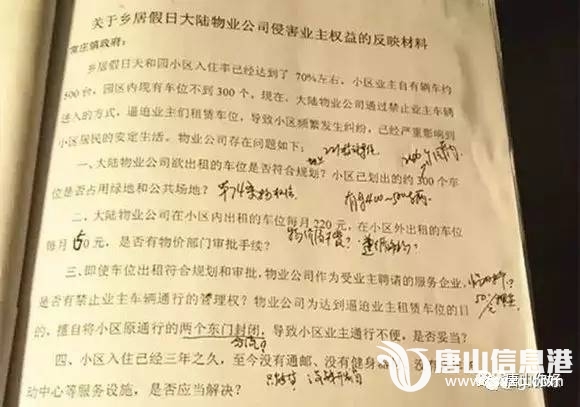 关于乡居假日大陆物业公司侵害业主权益的反映材料
常庄镇政府：
乡居假日天和园小区入住率已经达到了 70%左右，小区业主自有辆车约
500台，园区内现有车位不到 300 个，现在，大陆物业公司通过禁止业主车辆
进入的方式，逼迫业主们租赁车位，导致小区频繁发生纠纷，已经严重影响到
小区居民的安定生活。物业公司存在问题如下：
一、大陆物业公司欲出租的车位是否符合规划？小区已划出的约 300 个车
位是否占用绿地和公共场地？
有车400～500辆
二、大陆物业公司在小区内出租的车位每月 220 元，在小区外出租的车位
每月 150 元，是否有物价部门审批手续？
三、即使车位出租符合规划和审批，物业公司作为受业主聘请的服务企业，
是否有禁止业主车辆通行的管理权？物业公司为达到逼迫业主租赁车位的目
的，擅自将小区原通行的两个东门封闭，导致小区业主通行不便，是否妥当？
四、小区入住已经三年之久，至今没有通邮，没有健身器
动中心等服务设施，是否应当解决？
唐山信息港
唐山你好